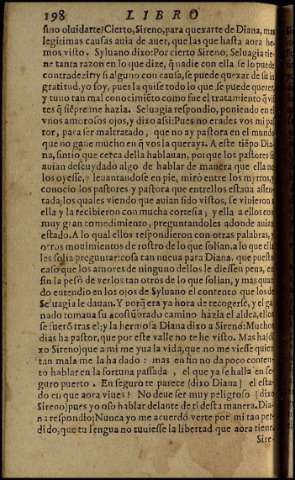 198 LIBRO
sino oluidarte? Cierto, Sireno, para quexarte de Diana, mas
legitimas causas auia de auer, que las que hasta aora he-
mos visto. Syluano dixo: Por cierto Sireno, Seluagia tie-
ne tanta razon en lo que dize, q̃ nadie con ella se lo puede
contradezir: y si alguno con causa, se puede quexar de su in
gratitud, yo soy, pues la quise todo lo que se puede querer,
y tuuo tan mal conocimiẽto como fue el tratamiẽto q̃ vis
tes q̃ siẽpre me hazia. Seluagia respondio, poniendo en el
vnos amorosos ojos, y dixo assi: Pues no erades vos mi pas
tor, para ser maltratado, que no ay pastora en el mundo
que no gane mucho en q̃ vos la querays. A este tiẽpo Dia
na, sintio que cerca della hablauan, porque los pastores se
auian descuydado algo de hablar de manera que ella no
los oyesse, y leuantandose en pie, mirò entre los mirtos, y
conocio los pastores y pastora que entrellos estaua assen-
tada, los quales viendo que auian sido vistos, se vinieron a
ella y la recibieron con mucha cortesia, y ella a ellos con
muy gran comedimiento, preguntandoles adonde auian
estado. A lo qual ellos respondieron con otras palabras, y
otros mouimientos de rostro de lo que solian, a lo que ella
les solia preguntar: cosa tan nueua para Diana, que puesto
caso que los amores de ninguno dellos le diessen pena, en
fin la pesò de verlos tan otros de lo que solian, y mas quan
do entendio en los ojos de Syluano el contento que los de
Seluagia le dauan. Y porq̃ era ya hora de recogerse, y el ga
nado tomaua su acostũbrado camino hazia el aldea, ellos
se fuerõ tras el: y la hermosa Diana dixo a Sireno: Muchos
dias ha pastor, que por este valle no te he visto. Mas ha (di
xo Sireno) que a mi me yua la vida, que no me viesse quien
tan mala me la ha dado: mas en fin no da poco conten-
to hablar en la fortuna passada, el que ya se halla en se-
guro puerto. En seguro te parece (dixo Diana) el esta-
do en que aora viues? No deue ser muy peligroso (dixo
Sireno) pues yo oso hablar delãte de ti desta manera. Dia-
na respondio: Nunca yo me acuerdo verte por mi tan per
dido, que tu lengua no tuuiesse la libertad que aora tiene.
Sire-